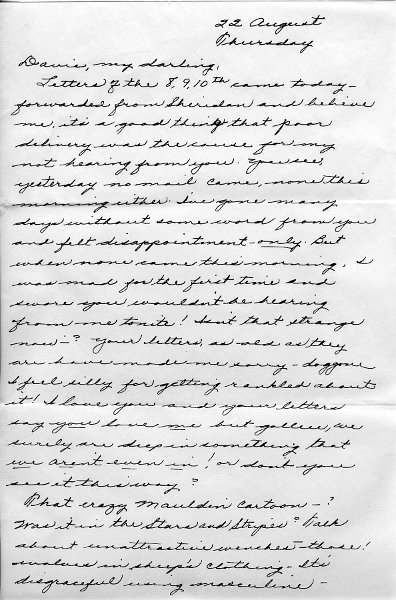 22 August
Thursday
Davie, my darling,
Letters of the 8, 9, 10th came today -
forwarded from Sheridan and believe
me, it's a good thing that poor
delivery was the cause for my
not hearing from you. You see,
yesterday no mail came, none this
morning either. I've gone many
days without some word from you
and felt disappointment - only. But
when none came this morning, I
was mad for the first time and
swore you wouldn't be hearing
from me tonite! Isn't that strange
now - ? Your letters, as old as they
are have made me sorry - doggone
I feel silly for getting rankled about
it! I love you and your letters
say you love me but gollee, we
surely are deep in something that
we aren't even in! or don't you
see it this way?
That crazy Mauldin cartoon - ?
Was it in the Stars and Stripes? Talk
about unattractive wenches - those!
wolves in sheep's clothing - It's
disgraceful using masculine -